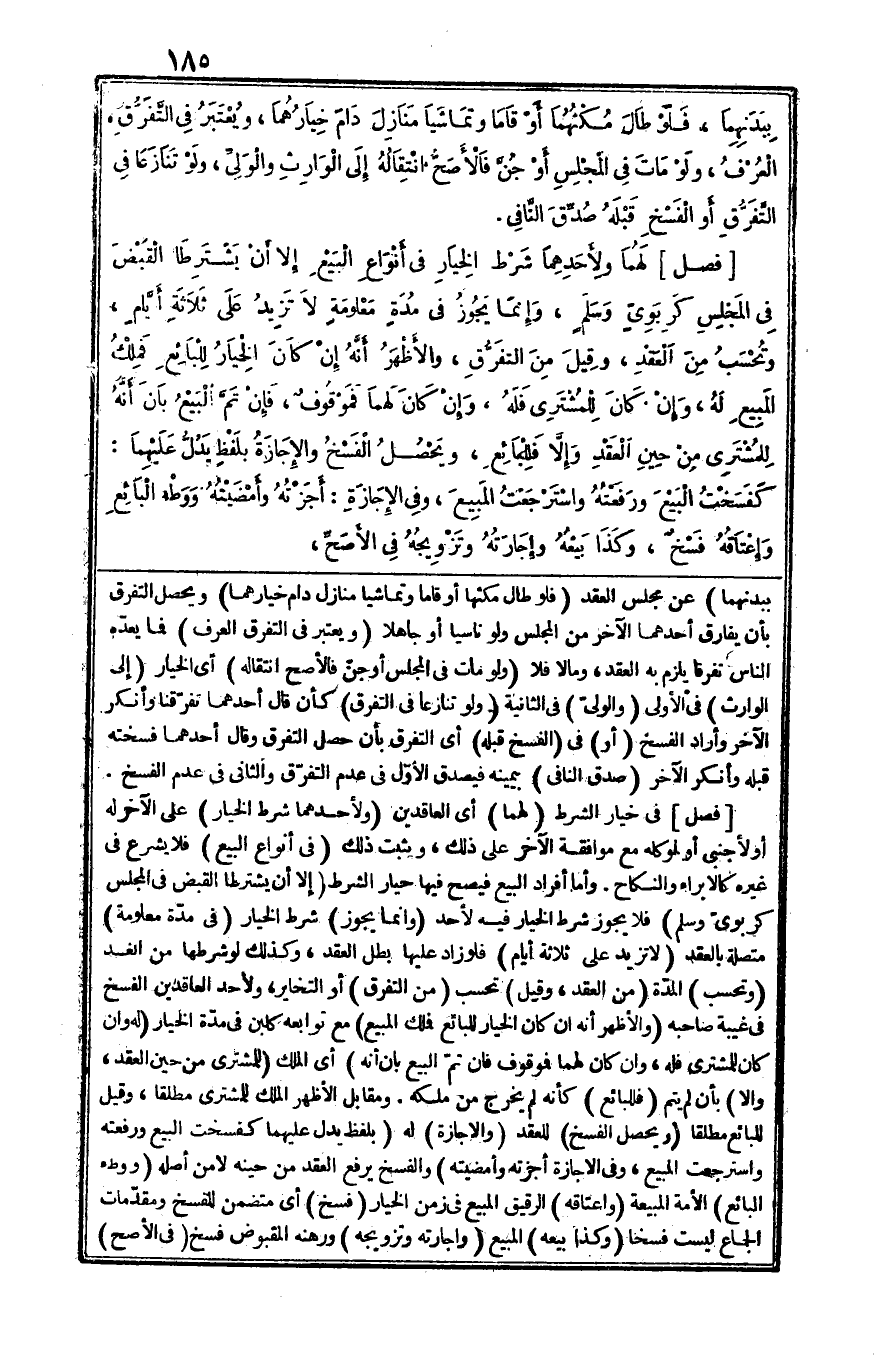 ١٨٥
بِبَدَنِهِمَا ، فَلَوْ طَالَ مُكْثُهُمَا أَوْ قَامَا وتَمَاشَيَا مَنَازِلَ دَامَ خِيَارُهُمَا ، ويُعْتَبَرُ فِى التَّفَرُّقِ
الْعُرْفُ ، ولَوْ مَاتَ فِى الْمَجْلِسِ أَوْ جُنَّ فَالْأَصَحُّ انْتِقَالُهُ إِلَى الْوَارِثِ والْوَلِىِّ ، ولَوْ تَنَازَعَا فِى
التَّفَرُّقِ أَوِ الْفَسْخِ قَبْلَهُ صُدِّقَ النَّافِى .
[ فصل ] لَهُمَا ولِأَحَدِهِمَا شَرْطُ الْخِيَارِ فِى أَنْوَاعِ الْبَيْعِ إِلَّا أَنْ يَشْتَرِطَا الْقَبْضَ
فِى الْمَجْلِسِ كَرِبَوِىٍّ وَسَلَمٍ ، وَإِنَّمَا يَجُوزُ فِى مُدَّةٍ مَعْلُومَةٍ لَا تَزِيدُ عَلَى ثَلَاثَةِ أَيَّامٍ ،
وتُحْسَبُ مِنَ الْعَقْدِ ، وقِيلَ مِنَ التَّفَرُّقِ ، والأَظْهَرُ أَنَّهُ إِنْ كَانَ الْخِيَارُ لِلْبَائِعِ فَمِلْكُ
الْمَبِيعِ لَهُ ، وَإِنْ كَانَ لِلْمُشْتَرِى فَلَهُ ، وَإِنْ كَانَ لَهُمَا فَمَوْقُوفٌ ، فَإِنْ تَمَّ الْبَيْعُ بَانَ أَنَّهُ
لِلْمُشْتَرِى مِنْ حِينِ الْعَقْدِ وَإِلَّا فَلِلْبَائِعِ ، ويَحْصُلُ الْفَسْخُ والإِجَازَةُ بِلَفْظٍ يَدُلُّ عَلَيْهِمَا :
كَفَسَخْتُ الْبَيْعَ ورَفَعْتُهُ واسْتَرْجَعْتُ الْمَبِيعَ ، وفِى الإِجَازَةِ : أَجَزْتُهُ وأَمْضَيْتُهُ وَوَطْءُ الْبَائِعِ
وَإِعْتَاقُهُ فَسْخٌ ، وكَذَا بَيْعُهُ وإِجَارَتُهُ وتَزْوِيجُهُ فِى الأَصَحِّ ،
ببدنهما ) عن مجلس العقد ( فلو طال مكثهما أو قاما وتماشيا منازل دام خيارهما ) ويحصل التفرق
بأن يفارق أحدهما الآخر من المجلس ولو ناسيا أو جاهلا ( ويعتبر فى التفرق العرف ) فما يعدّه
الناس تفرقا يلزم به العقد ، ومالا فلا ( ولو مات فى المجلس أو جنّ فالأصح انتقاله ) أى الخيار ( إلى
الوارث ) فى الأولى ( والولىّ ) فى الثانية ( ولو تنازعا فى التفرق ) كأن قال أحدهما تفرّقنا وأنكر
الآخر وأراد الفسخ ( أو ) فى ( الفسخ قبله ) أى التفرق بأن حصل التفرق وقال أحدهما فسخته
قبله وأنكر الآخر ( صدق النافى ) بيمينه فيصدق الأوّل فى عدم التفرّق والثانى فى عدم الفسخ .
[ فصل ] فى خيار الشرط ( لهما ) أى العاقدين ( ولأحدهما شرط الخيار ) على الآخر له
أو لأجنبي أو لموكله مع موافقة الآخر على ذلك ، ويثبت ذلك ( فى أنواع البيع ) فلا يشرع فى
غيره كالابراء والنكاح . وأما أفراد البيع فيصح فيها خيار الشرط ( إلا أن يشترطا القبض فى المجلس
كربوىّ وسلم ) فلا يجوز شرط الخيار فيه لأحد ( وانما يجوز ) شرط الخيار ( فى مدّة معلومة )
متصلة بالعقد ( لا تزيد على ثلاثة أيام ) فلو زاد عليها بطل العقد ، وكذلك لو شرطها من الغد
( وتحسب ) المدّة ( من العقد ، وقيل ) تحسب ( من التفرق ) أو التخاير، ولأحد العاقدين الفسخ
فى غيبة صاحبه ( والأظهر أنه ان كان الخيار للبائع فملك المبيع ) مع توابعه كلبن فى مدّة الخيار ( له وان
كان للمشترى فله ، وان كان لهما فموقوف فان تمّ البيع بان أنه ) أى الملك ( للمشترى من حين العقد ،
والا ) بأن لم يتم ( فللبائع ) كأنه لم يخرج من ملكه . ومقابل الأظهر الملك للمشترى مطلقا ، وقيل
للبائع مطلقا ( ويحصل الفسخ ) للعقد ( والاجازة ) له ( بلفظ يدل عليهما كفسخت البيع ورفعته
واسترجعت المبيع ، وفى الاجازة أجزته وأمضيته ) والفسخ يرفع العقد من حينه لا من أصله ( ووطء
البائع ) الأمة المبيعة ( واعتاقه ) الرقيق المبيع فى زمن الخيار ( فسخ ) أى متضمن للفسخ ومقدّمات
الجماع ليست فسخا ( وكذا بيعه ) المبيع ( واجارته وتزويجه ) ورهنه المقبوض فسخ ( فى الأصح )